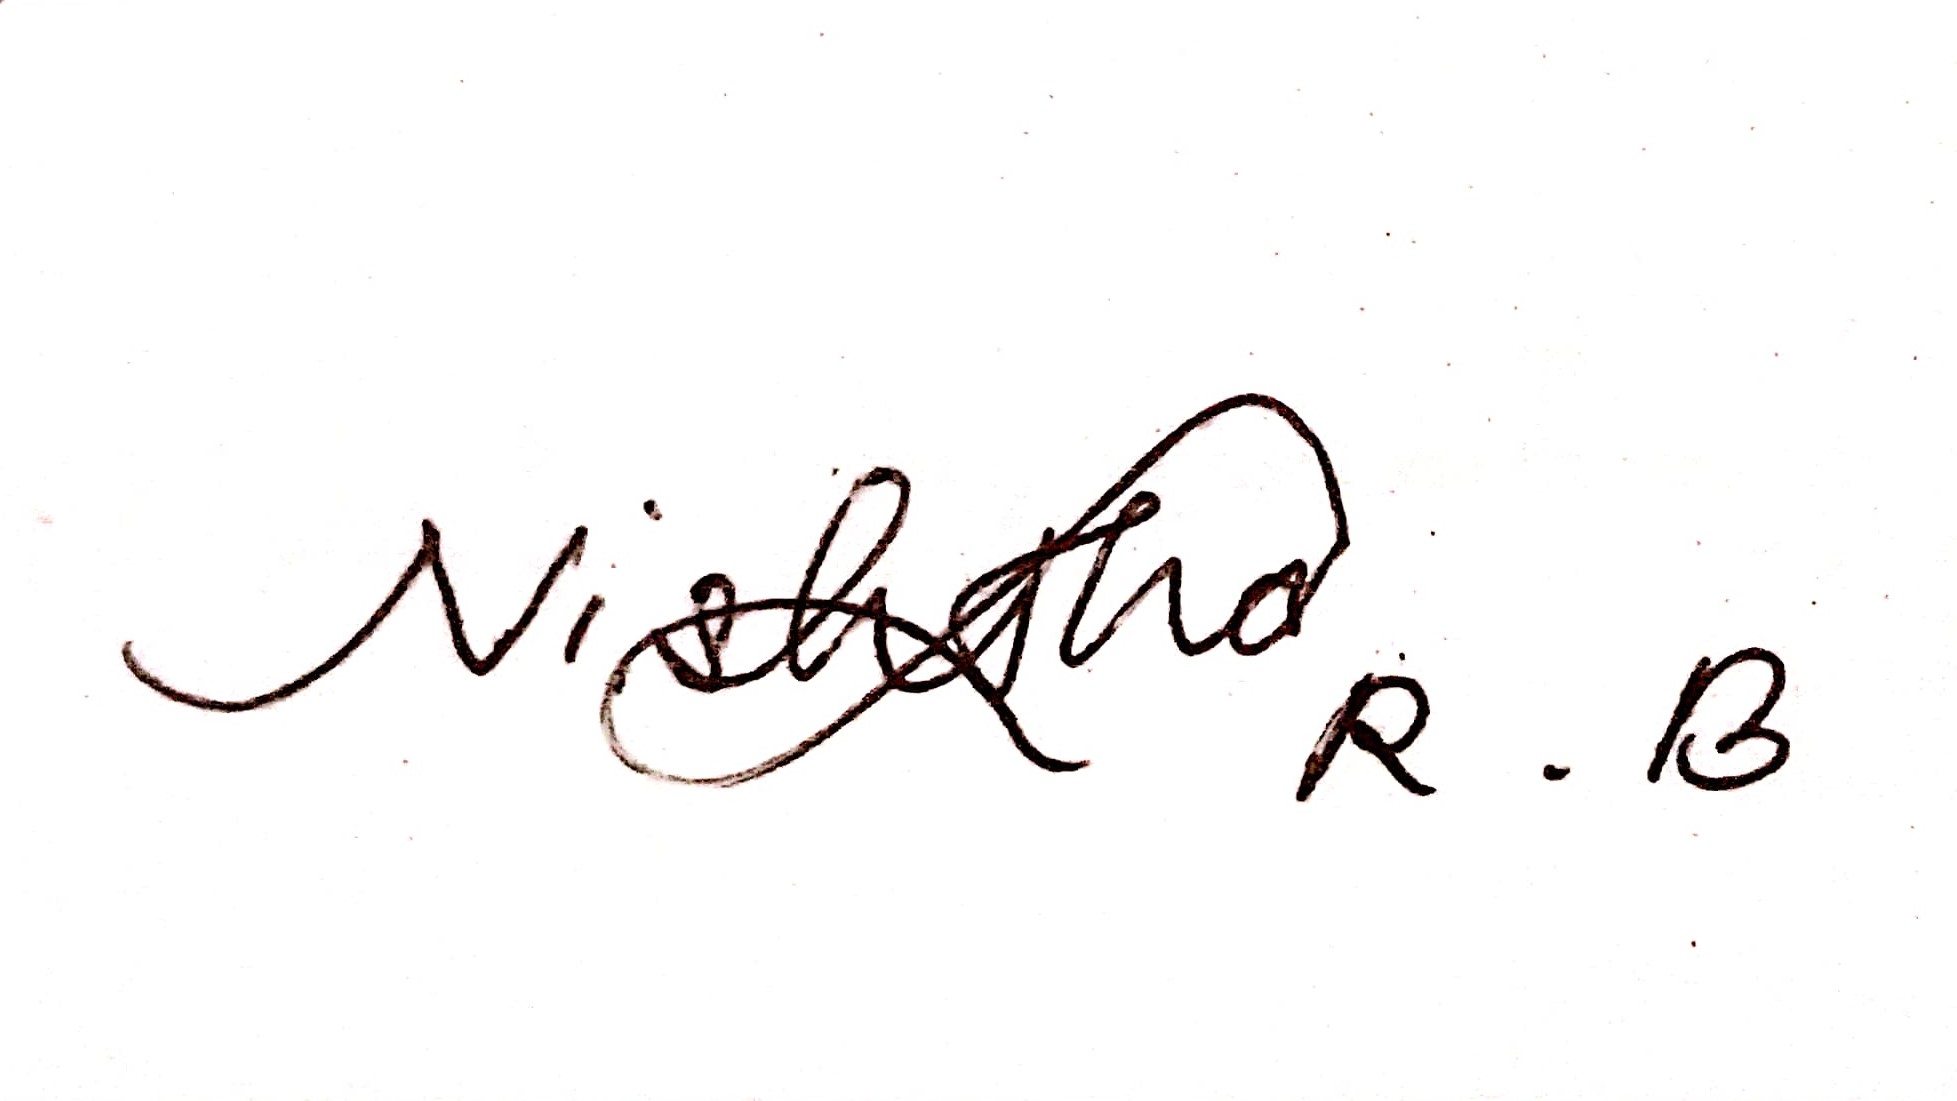 Nishitha R . B